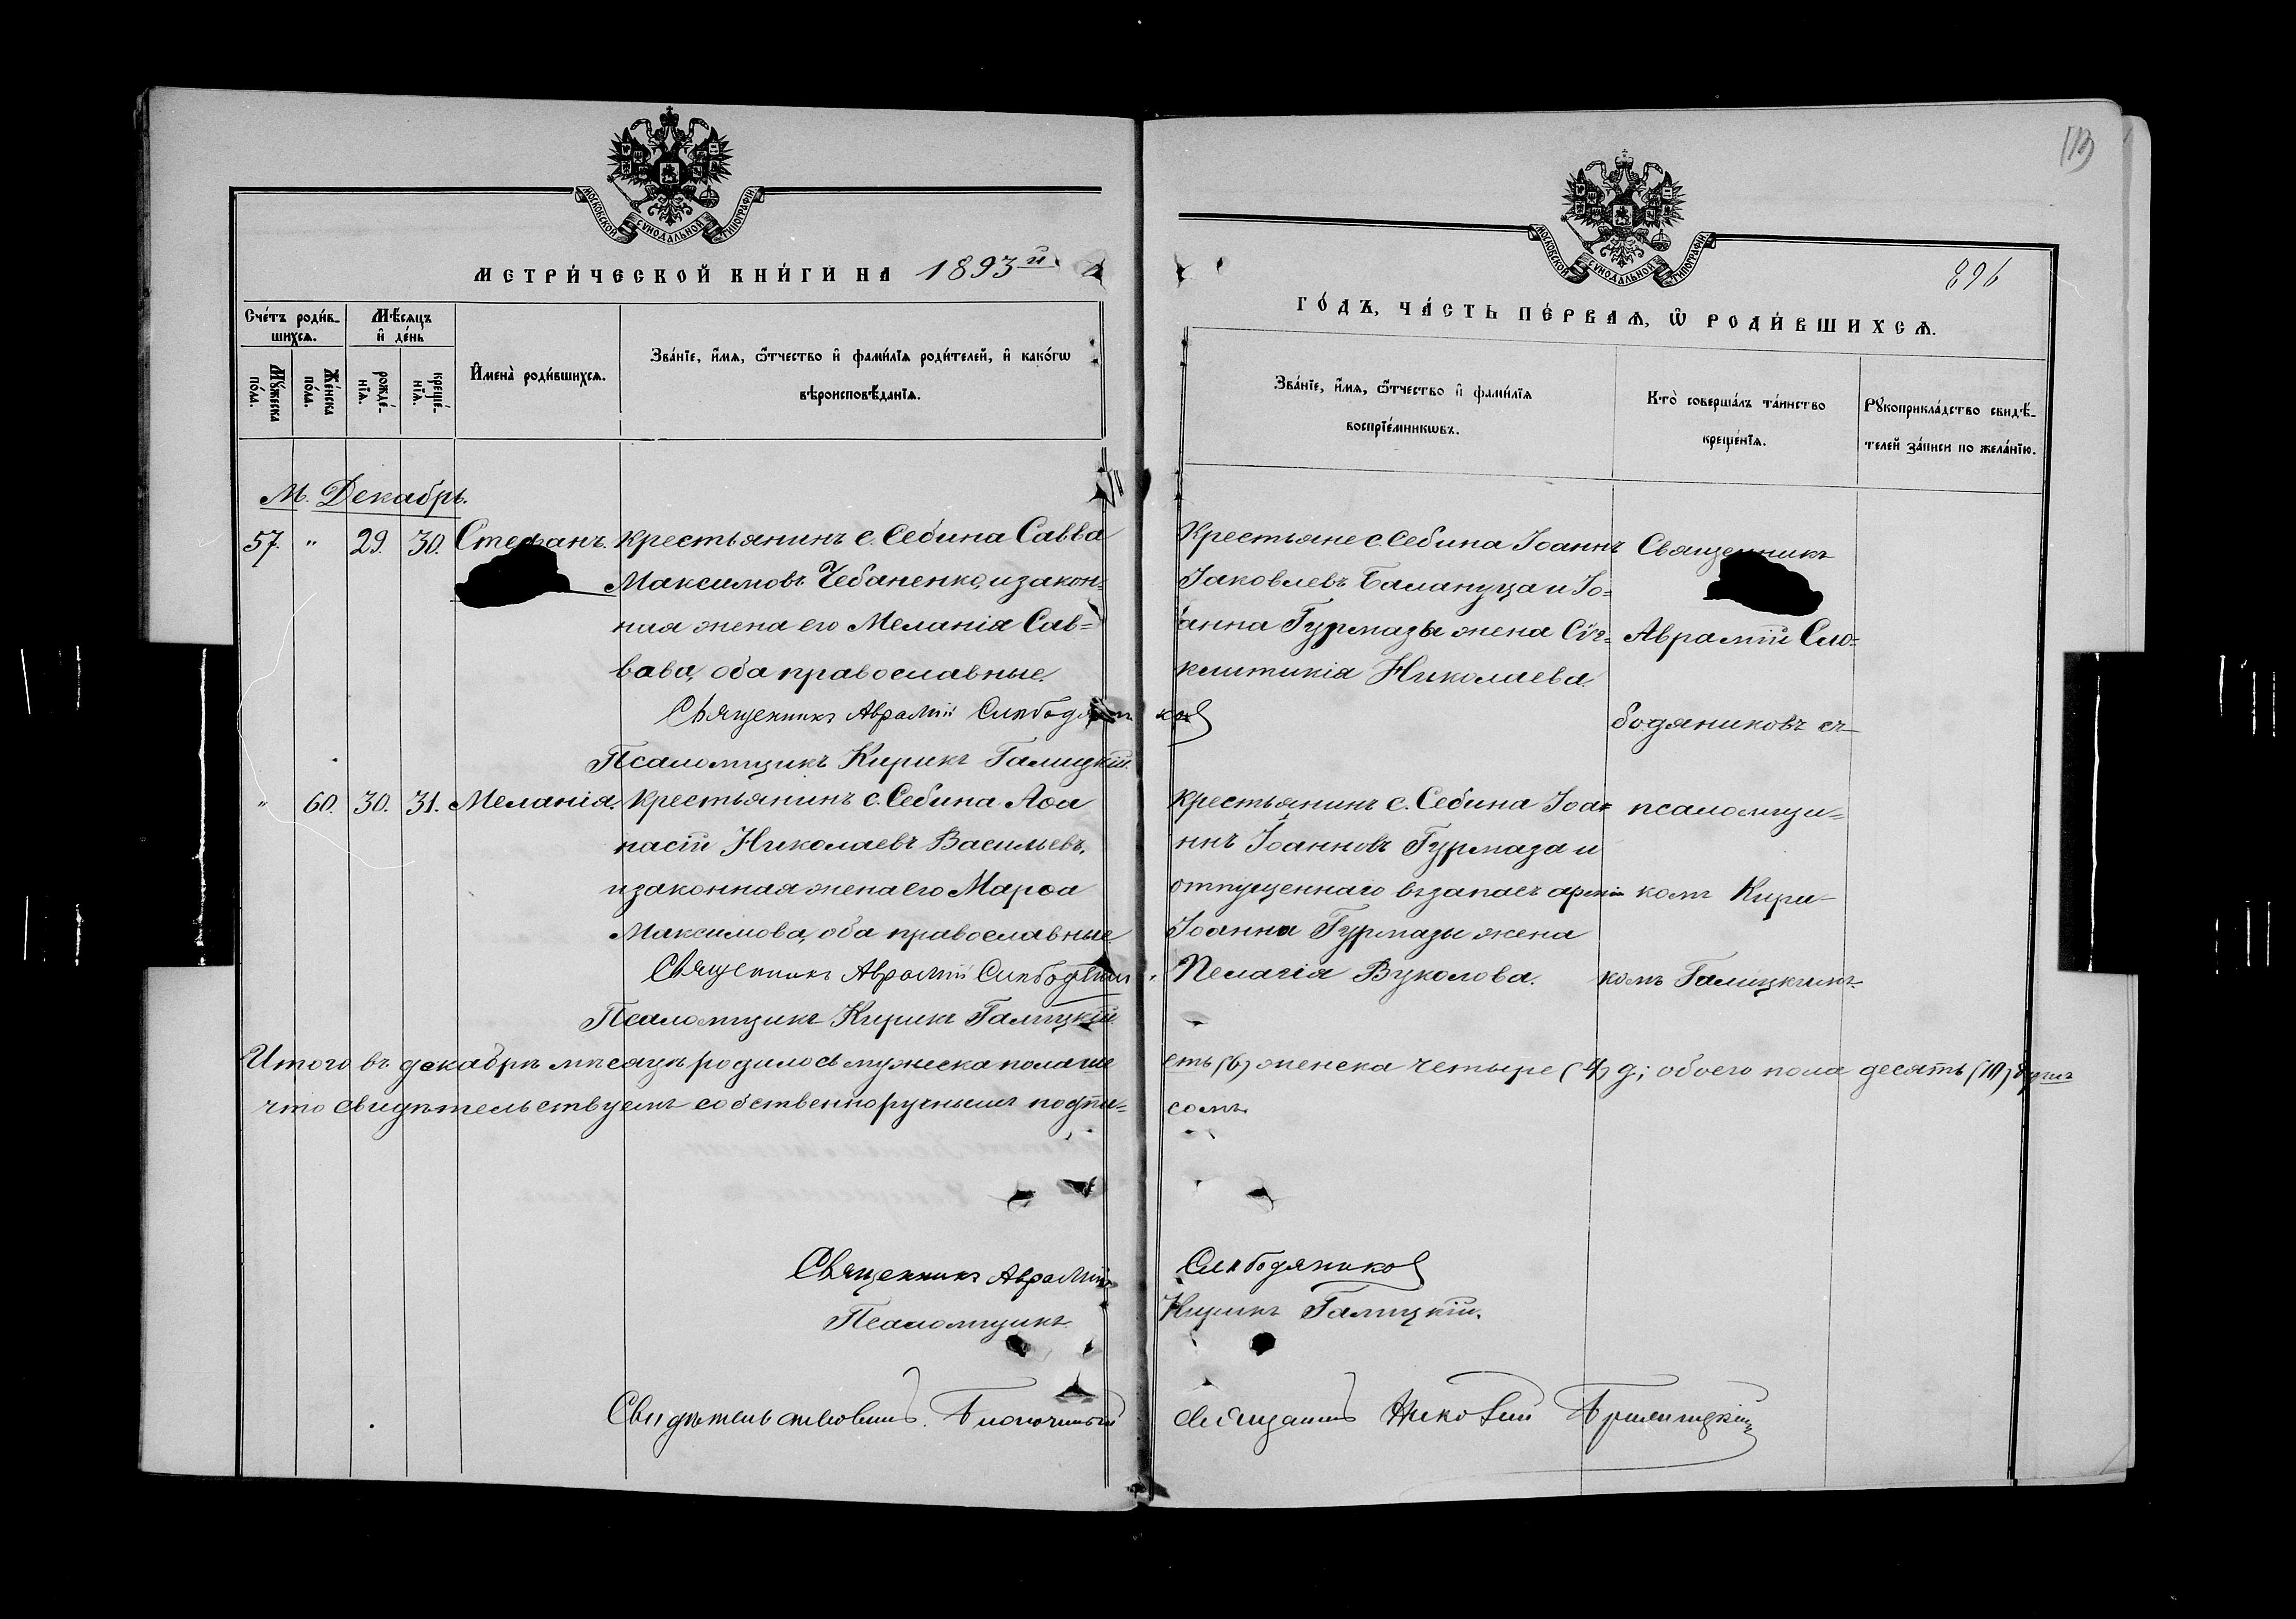 119
МОСКОВСКОЙ СУНОДАЛЬНОЙ ТИПОГРАФІИ
МОСКОВСКОЙ СУНОДАЛЬНОЙ ТИПОГРАФІИ
896
МЕТРИ́ЧЕСКОЙ КНИ́ГИ НА 1893й
ГО́ДЪ, ЧА́СТЬ ПЕ́РВАѦ, Ѡ҆ РОДИ́ВШИХСѦ.
Сче́тъ роди́в-
шихсѧ.
Мѣ́сѧцъ
и҆ де́нь
Мꙋ́жеска
по́ла.
Же́нска
по́ла.
рожде́-
нїѧ.
креще́-
нїѧ.
И҆мена̀ роди́вшихсѧ.
Зва́нїе, и҆́мѧ, ѻ҆́тчество и҆ фами́лїѧ роди́телей, и҆ како́гѡ
вѣроисповѣ́данїѧ.
Зва́нїе, и҆́мѧ, ѻ҆́тчество и҆ фами́лїѧ
воспрїе́мникѡвъ.
Кто̀ соверша́лъ та́инство
креще́нїѧ.
Рꙋкоприкла́дство свидѣ́-
телей за́писи по жела́нїю.
М. Декабрь.
57. " 29. 30. Стефанъ. Крестьянинъ с. Себина Савва
Максимовъ Чебаненко, и закон-
ная жена его Меланія Сав-
вава, оба православные.
Священникъ Аврамій Слободяниковъ
Псаломщикъ Кирикъ Галицкій.
Крестьяне с. Себина Іоаннъ
Іаковлевъ Балануца и Іо=
анна Гурмазы жена Сѵн-
клитикія Николаева.
Священникъ
Аврамій Сло=
бодяниковъ съ
" 60. 30. 31. Меланія. Крестьянинъ с. Себина Аѳа
насій Николаевъ Васильевъ,
и законная жена его Марѳа
Максимова, оба православные
Священникъ Аврамій Слободяник
Псаломщикъ Кирикъ Галицкій.
Крестьянинъ с. Себина Іоа=
ннъ Іоанновъ Гурмаза и
отпущеннаго въ запасъ арміи
Іоанна Гурмазы жена
Пелагія Вуколова.
псаломщи=
комъ Кири-
комъ Галицкимъ.
Итого въ декабрѣ мѣсяцѣ родилось мужеска пола шесть (6) женска четыре (4) д; обоего пола десять (10) душъ
что свидѣтельствуемъ собственноручнымъ подписомъ.
Священникъ Аврамій Слободяников
Псаломщикъ Кирикъ Галицкій.
Свидѣтельствовалъ. Благочинный